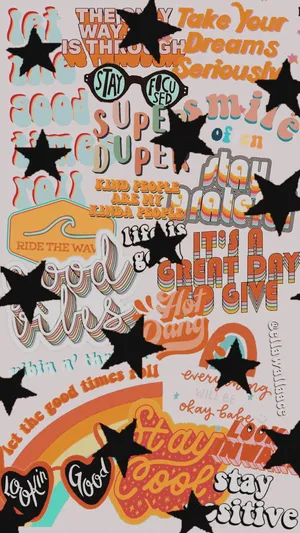 let
the
good
times
roll
THE ONLY
WAY
IS THROUGH
Take Your
Dreams
Seriously
STAY FOCUSED
SUPER
DUPER
smile
KIND PEOPLE
ARE MY
KINDA PEOPLE
stay
RIDE THE WAVE
life is
good
vibes
IT'S A
GREAT DAY
TO GIVE
Hot
Dang
@ellawallacee
let the good times roll
everything
WILL BE
okay babe
Lookin Good
Stay
Cool
stay